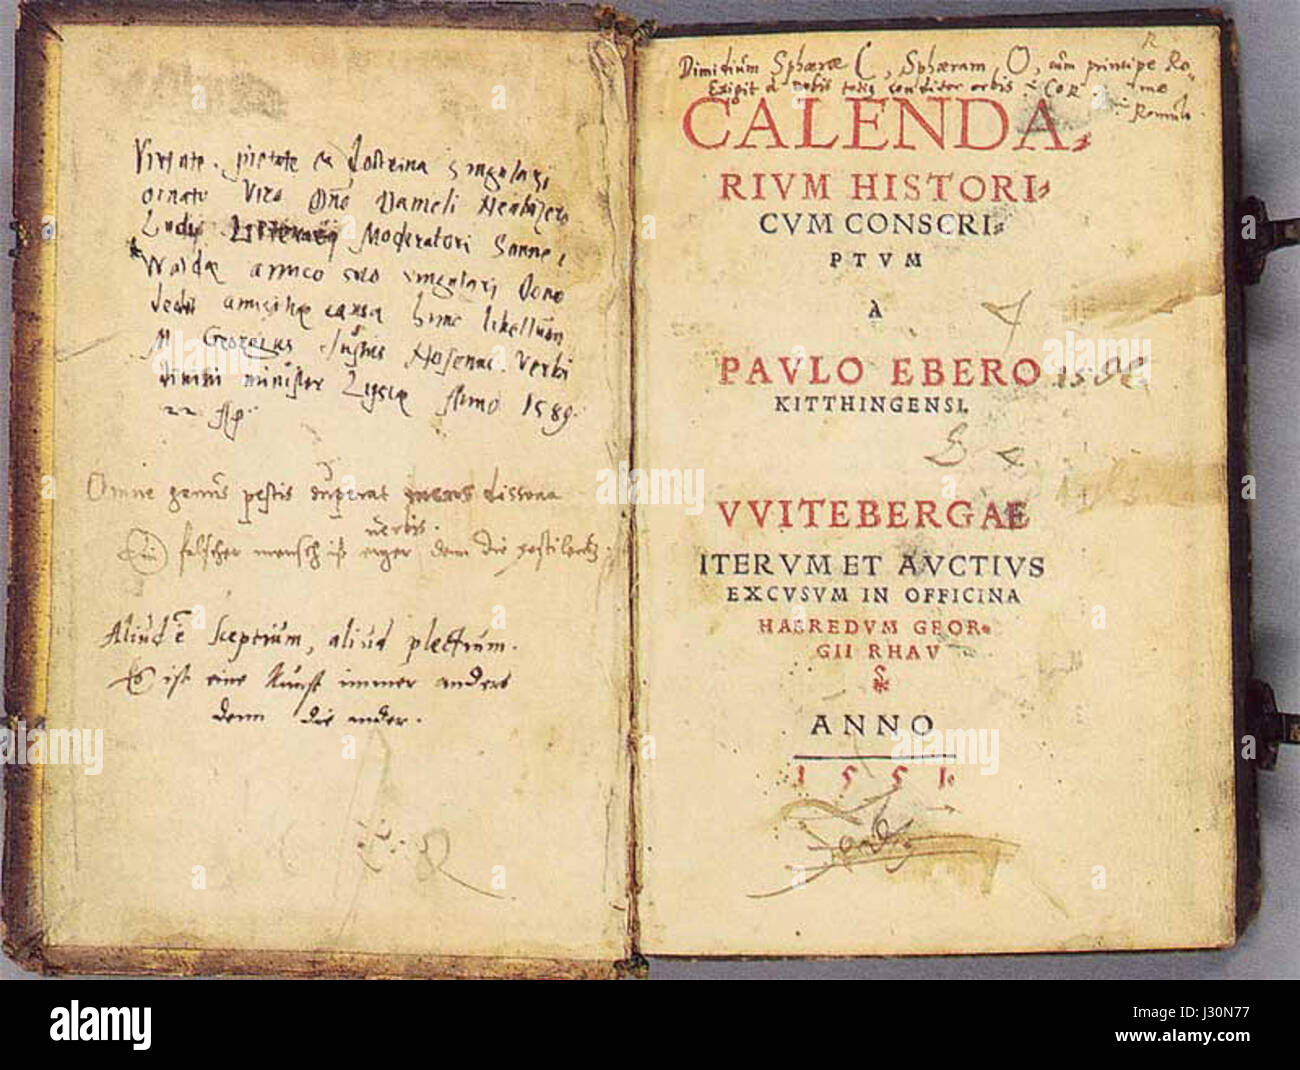 Virtute, pietate et doctrina singulari
ornato Viro Dño Danieli
Ludi Moderatori Sonne,
Waldæ amico suo singulari Dono
dedit amicitiæ causa hunc libellum
M Georgius Justus Verbi
divini minister Anno 1589.
22 Ap.
Omne genus pestis superat mens dissona
verbis.
Ein falscher mensch ist erger dem die pestilentz.
Aliud ē Sceptrum, aliud plectrum.
Es ist eine Kunst immer anders
denn die ander.
Dimidium Sphæræ C, Sphæram, O, cum principe Ro,
Exigit a nobis conditor orbis : COR. : mæ
: Romulo.
CALENDA,
RIVM HISTORI,
CVM CONSCRI,
PTVM
A
PAVLO EBERO
KITTHINGENSI.
VVITEBERGAE
ITERVM ET AVCTIVS
EXCVSVM IN OFFICINA
HAEREDVM GEOR,
GII RHAV
ANNO
1551.
alamy
Image ID: J30N77
www.alamy.com